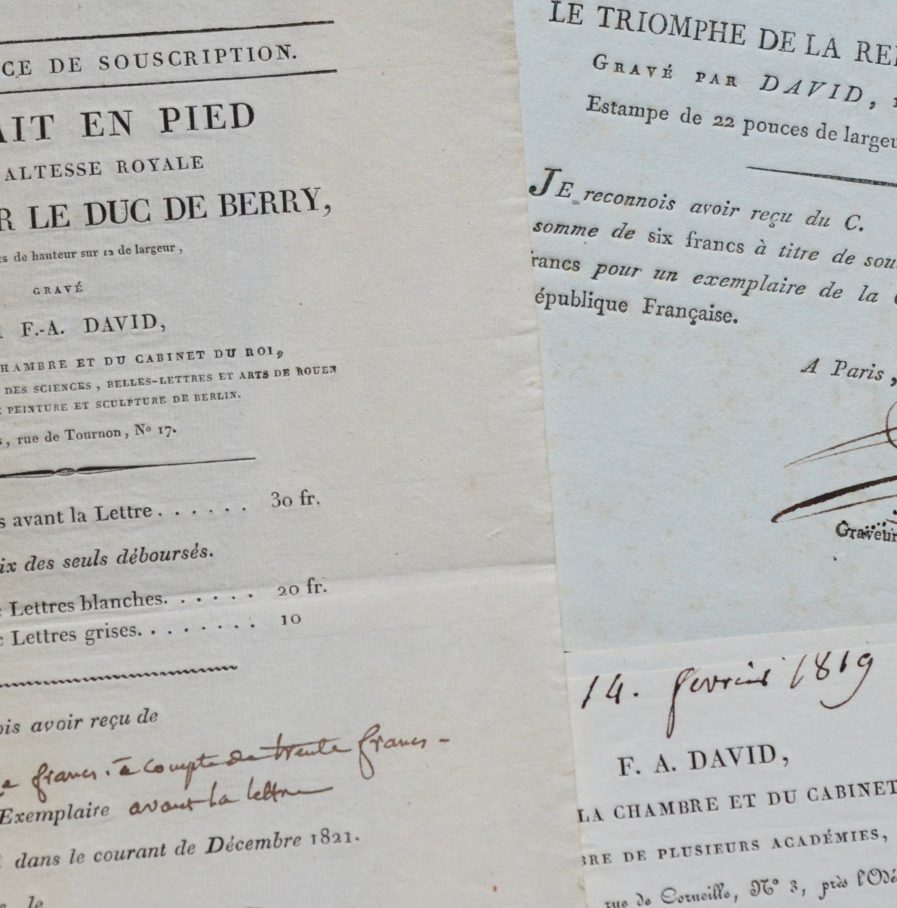 CE DE SOUSCRIPTION.
AIT EN PIED
ALTESSE ROYALE
R LE DUC DE BERRY,
s de hauteur sur 12 de largeur,
GRAVÉ
F.-A. DAVID,
HAMBRE ET DU CABINET DU ROI,
DES SCIENCES, BELLES-LETTRES ET ARTS DE ROUEN
PEINTURE ET SCULPTURE DE BERLIN.
s, rue de Tournon, No 17.
s avant la Lettre . . . . . . 30 fr.
ix des seuls déboursés.
c Lettres blanches. . . . . . . 20 fr.
c Lettres grises. . . . . . . . 10
ois avoir reçu de
e francs. à compte de trente francs -
Exemplaire avant la lettre
dans le courant de Décembre 1821.
le
LE TRIOMPHE DE LA RE
GRAVÉ PAR DAVID,
Estampe de 22 pouces de largeu
JE reconnois avoir reçu du C.
somme de six francs à titre de sou
francs pour un exemplaire de la
épublique Française.
A Paris,
Graveur
14. fevrier 1819
F. A. DAVID,
LA CHAMBRE ET DU CABINET
BRE DE PLUSIEURS ACADÉMIES,
rue de Corneille, No 3, près l'Odé